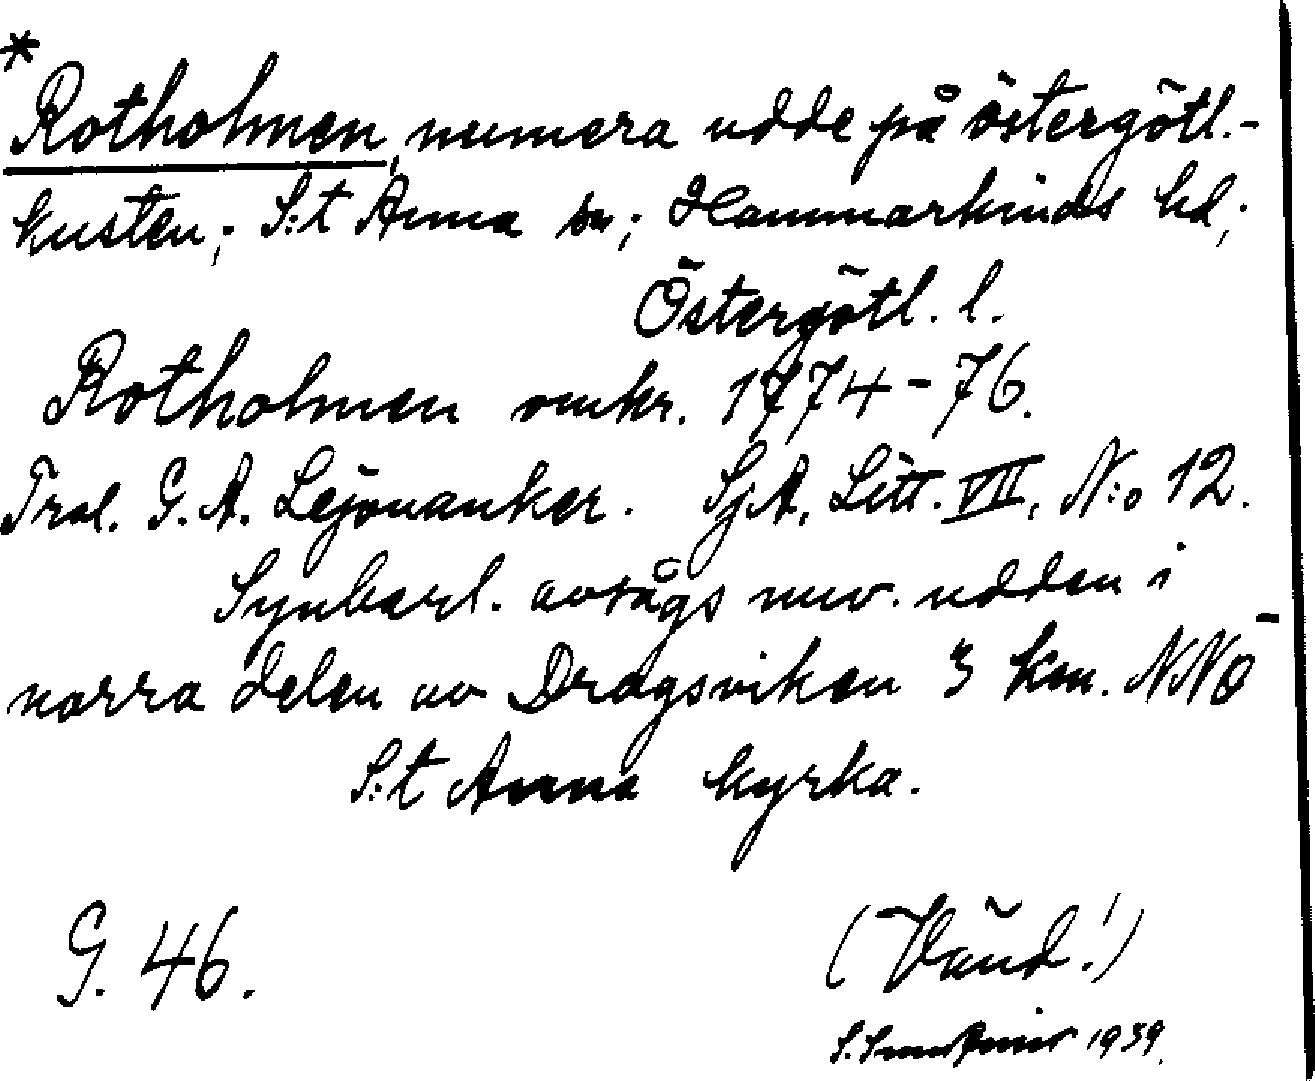 *
Rotholmen, numera udde på östergötl.-
kusten; S:t Anna sn; Hammarkinds hd;
Östergötl. l.
Rotholmen omkr. 1774-76.
Trol. G. A. Lejonanker. SjA, Litt. VII, N:o 12.
Synbarl. avsågs nuv. udden i
norra delen av Dragsviken 3 km. NNO
S:t Anna kyrka.
G. 46.
(Vänd!)
1939.